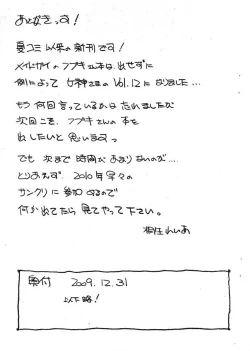 あとがきっス!
夏コミ以来の新刊です!
メイルサガイのフブキさん本は出せずに
例によって女神さまのVol.12になりました…
もう何回言っているかは忘れましたが
次回こそ、フブキさんの本を
出したいと思いまスっ
でも次まで時間があまりないのが…
とりあえず、2010年早々の
サンクリに参加するので
何か出てたら見てやって下さい。
相性れいあ
奥付 2009.12.31
以下略!